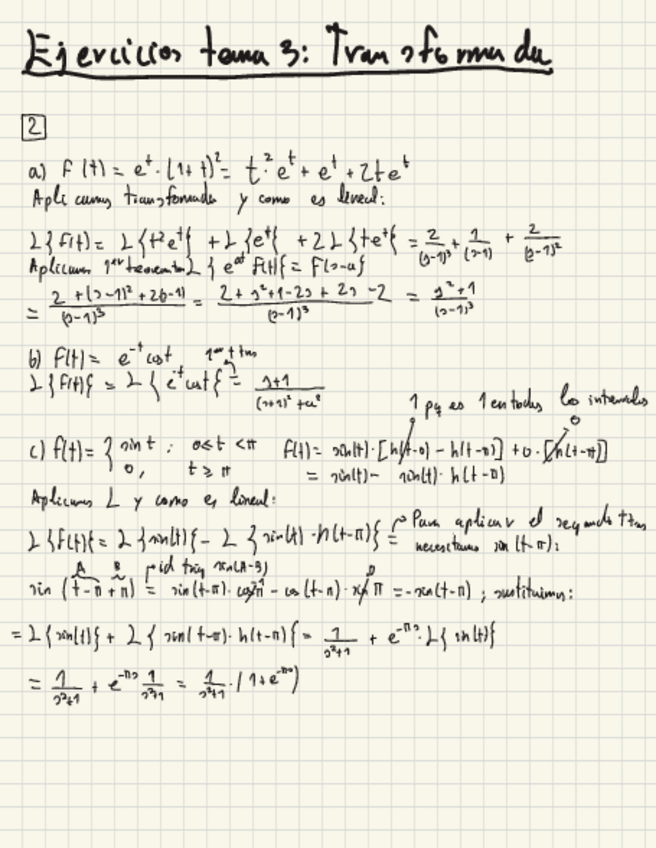 Ejercicios tema 3: Transformada
2
a) F(t) = e^t · (1+t)^2 = t^2·e^t + e^t + 2te^t
Aplicamos transformada y como es lineal:
L{f(t)} = L{t^2e^t} + L{e^t} + 2L{te^t} = 2/(s-1)^3 + 1/(s-1) + 2/(s-1)^2
Aplicamos 1er teorema L{e^at f(t)} = F(s-a)
= (2+(s-1)^2+2(s-1))/(s-1)^3 = (2+s^2+1-2s+2s-2)/(s-1)^3 = (s^2+1)/(s-1)^3
b) F(t) = e^-t cos t 1er ttras
L{F(t)} = L{e^-t cos t} = (s+1)/((s+1)^2+ω^2)
1 pq es 1 en todos los intervalos
c) f(t) = { sin t ; 0≤t<π f(t) = sin(t)·[h(t-0) - h(t-π)] + 0·[h(t-π)] 0
0, t≥π = sin(t) - sin(t)·h(t-π)
Aplicamos L y como es lineal:
L{f(t)} = L{sin(t)} - L{sin(t)·h(t-π)} = Para aplicar el segundo ttras
necesitamos sin(t-π):
A B id trig sin(A+B) 0
sin(t-π+π) = sin(t-π)·cos π - cos(t-π)·sin π = -sin(t-π) ; sustituimos:
= L{sin(t)} + L{sin(t-π)·h(t-π)} = 1/(s^2+1) + e^-πs·L{sin(t)}
= 1/(s^2+1) + e^-πs 1/(s^2+1) = 1/(s^2+1)·(1+e^-πs)